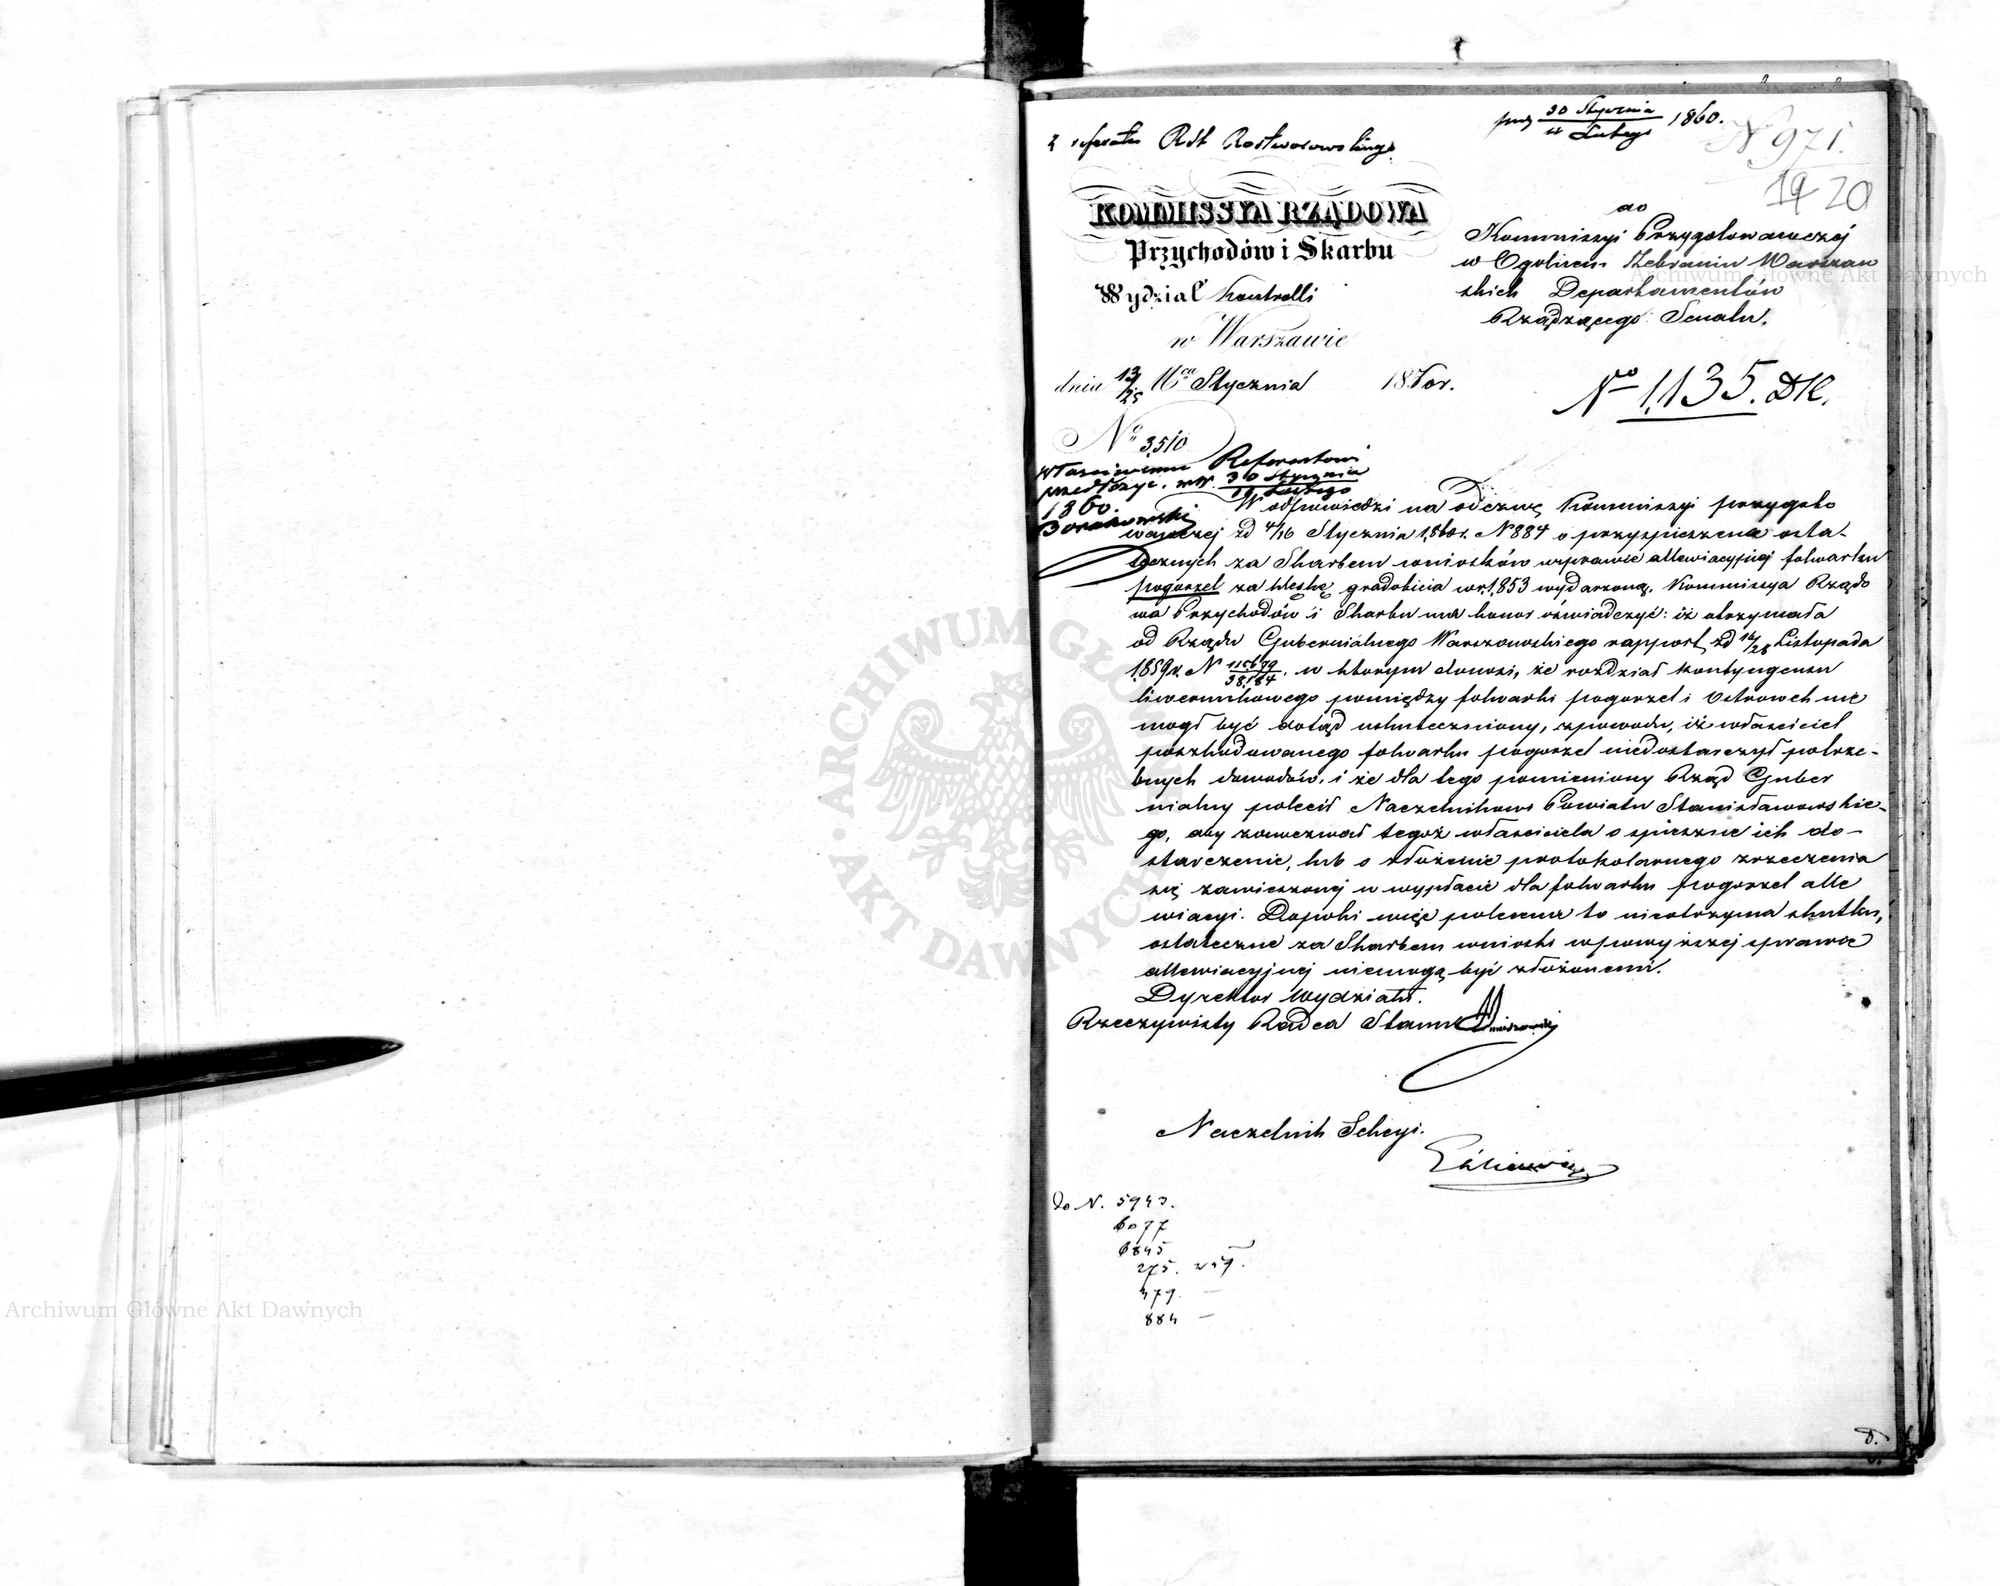 z referatu RSt Rostworowskiego
prez 30 Stycznia / 11 Lutego 1860.
N 971.
19 20
KOMMISSYA RZĄDOWA
Przychodów i Skarbu
Wydział Kontrolli
w Warszawie
dnia 13/25 Mca Stycznia 1860r.
No 3,510
do
Kommissyi Przygotowawczej
w Ogólnem Zebraniu Warszaw
skich Departamentów
Rządzącego Senatu.
No 1,135. DK.
Właściwemu Referentowi
przedłożyć. 30 Stycznia / 11 Lutego
1860.
Borakowski
W odpowiedzi na odezwę Kommissyi przygoto
wawczej zd 4/16 Stycznia 1,860r. N 884 o przyspieszenie osta-
tecznych za Skarbem wniosków w sprawie allewiacyjnej folwarku
pogorzel za klęskę gradobicia w r. 1,853 wydarzoną, Kommissya Rządo
wa Przychodów i Skarbu ma honor oświadczyć: iż otrzymała
od Rządu Gubernialnego Warszawskiego rapport zd 16/28 Listopada
1,859r. N 115679/38,184, w którym donosi, że rozdział kontyngensu
liwerunkowego pomiędzy folwarki pogorzel i Ostrowek nie
mógł być dotąd uskuteczniony, z powodu, iż właściciel
poszkodowanego folwarku pogorzel niedostarczył potrze-
bnych dowodów, i że dla tego pomieniony Rząd Guber
nialny polecił Naczelnikowi Powiatu Stanisławowskie-
go, aby zawezwał tegoż właściciela o spieszne ich do-
starczenie, lub o złożenie protokolarnego zrzeczenia
się zawieszonej w wypłacie dla folwarku pogorzel alle
wiacyi. Dopóki więc polecenie to nieotrzyma skutku,
ostateczne za Skarbem wnioski w powyższej sprawie
allewiacyjnej niemogą być złożonemi.
Dyrektor Wydziału.
Rzeczywisty Radca Stanu
Naczelnik Sekcyi.
do N. 5943.
6077
6845
275. z 59.
479. —
884 —
Archiwum Główne Akt Dawnych
ARCHIWUM GŁÓWNE AKT DAWNYCH
Archiwum Główne Akt Dawnych